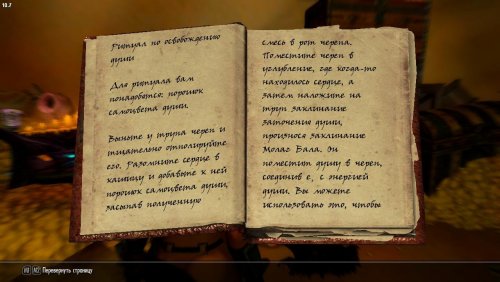 10.7
Ритуал по освобождению
души
Для ритуала вам
понадобится: порошок
самоцвета души.
Выньте у трупа череп и
тщательно отполируйте
его. Разомните сердце в
кашицу и добавьте к ней
порошок самоцвета души,
засыпав полученную
смесь в рот черепа.
Поместите череп в
углубление, где когда-то
находилось сердце, а
затем наложите на
труп заклинание
заточения души,
произнося заклинание
Молаг Бала. Он
поместит душу в череп,
соединив е, с энергией
души. Вы можете
использовать это, чтобы
Перевернуть страницу